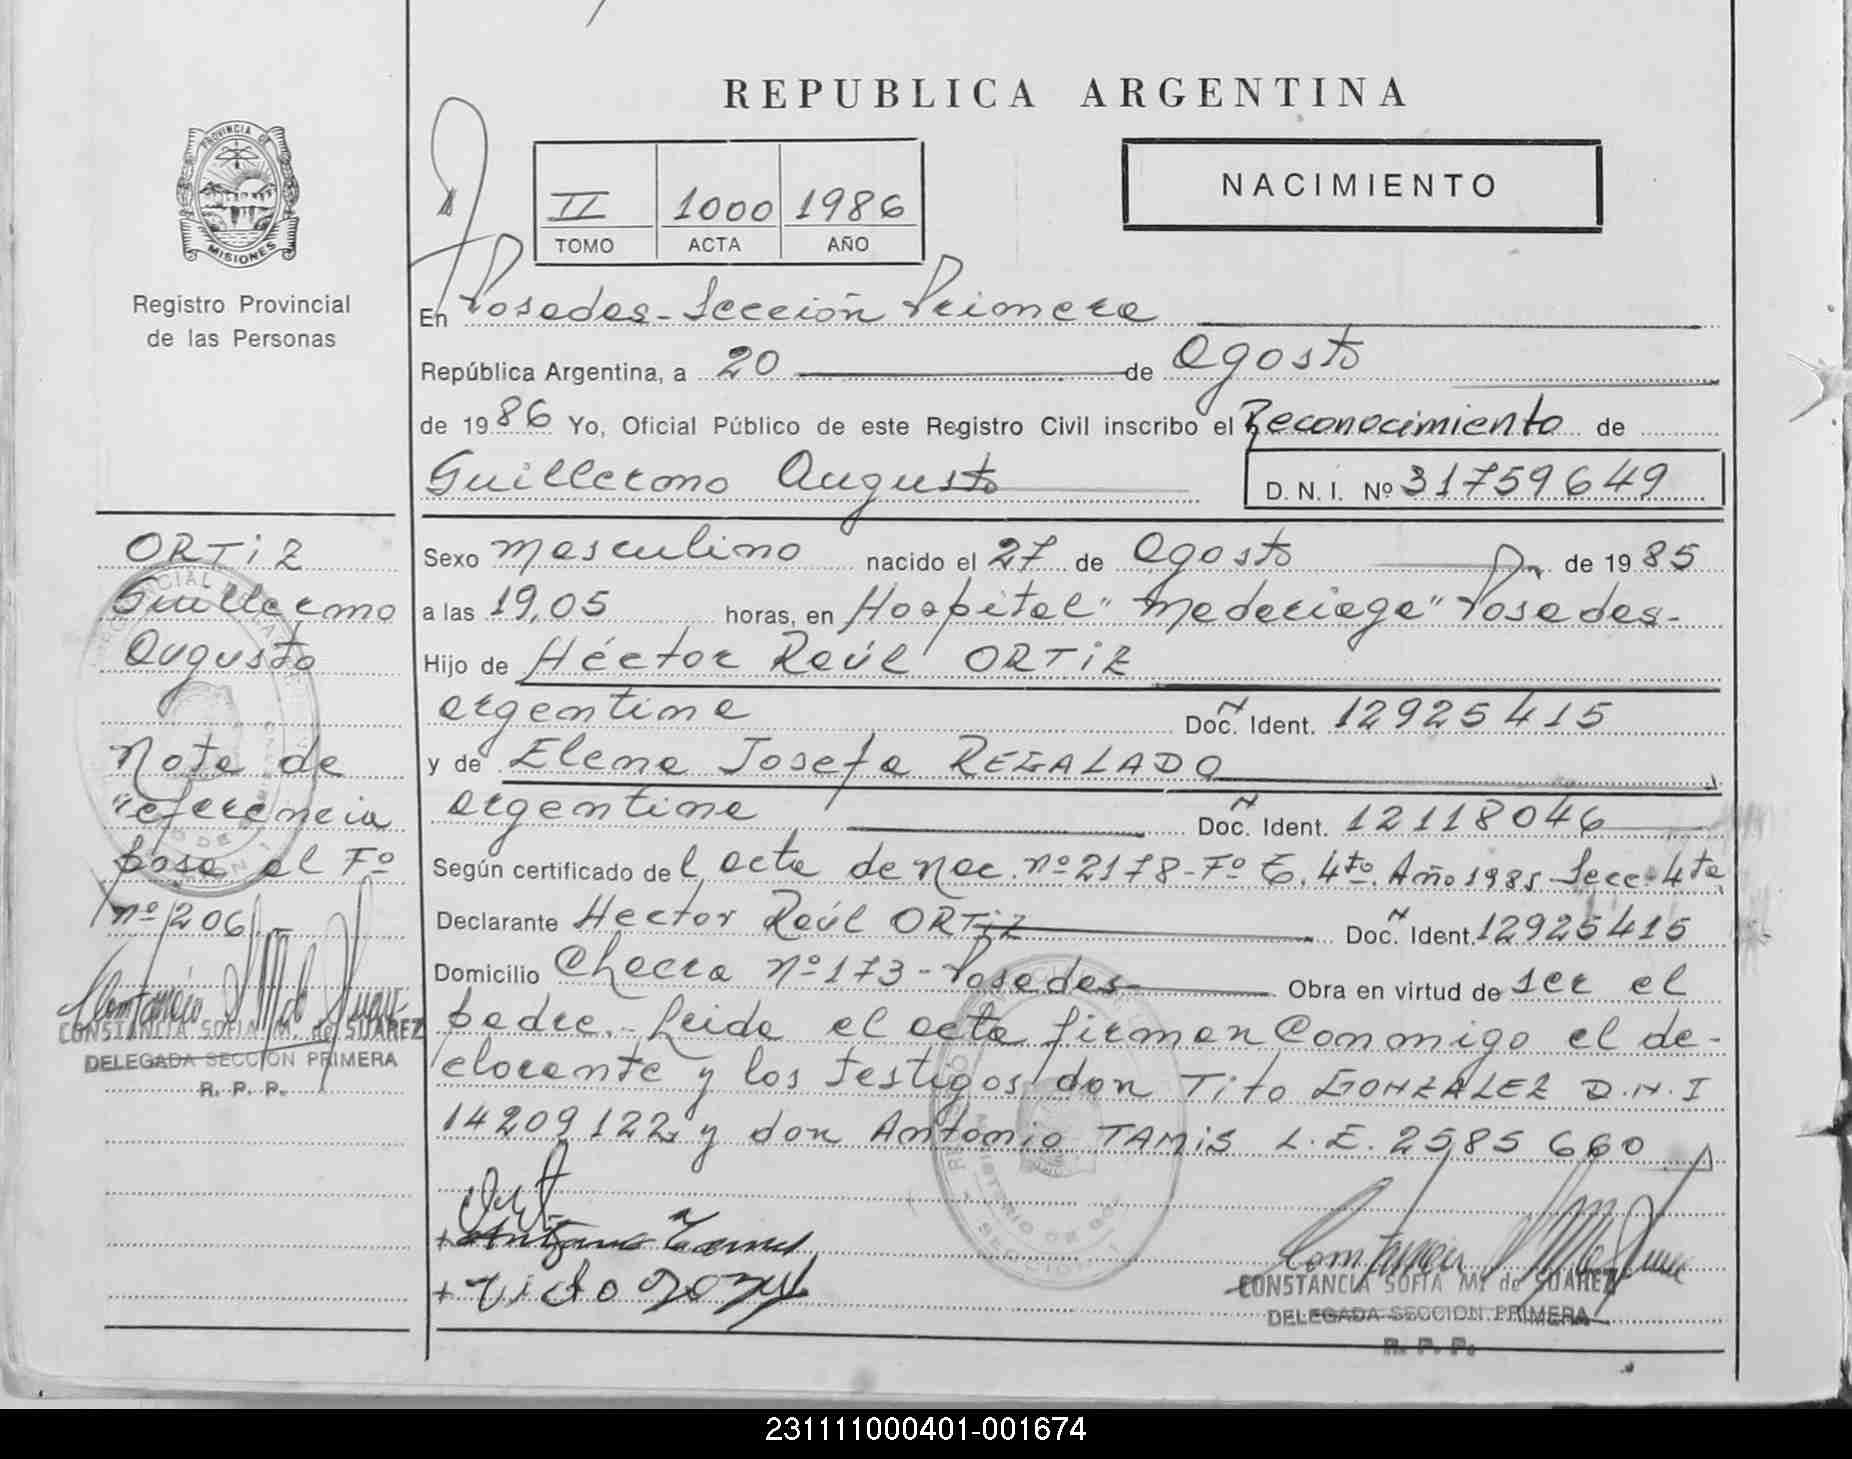 REPUBLICA ARGENTINA
PROVINCIA DE
MISIONES
Registro Provincial
de las Personas
II 1000 1986
TOMO ACTA AÑO
NACIMIENTO
En Posadas - Sección Primera
República Argentina, a 20 de Agosto
de 1986 Yo, Oficial Público de este Registro Civil inscribo el Reconocimiento de
Guillermo Augusto D. N. I. Nº 31759649
Sexo masculino nacido el 27 de Agosto de 1985
a las 19,05 horas, en Hospital "Madariaga" Posadas-
Hijo de Héctor Raúl ORTIZ
argentina Doc. Ident. 12925415
y de Elena Josefa REGALADO
argentina Doc. Ident. 12118046
Según certificado del acta de Nac. nº 2178-Fº 4to. Año 1985 Secc- 4ta
Declarante Hector Raúl ORTIZ Doc. Ident. 12925415
Domicilio Chacra nº 173 - Posadas- Obra en virtud de ser el
padre.- Leida el acta firman conmigo el de-
clarante y los testigos don Tito GONZALEZ D.N.I
14209122 y don Antonio TAMIS L.E. 2585660
CONSTANCIA SOFIA M. de SUAREZ
DELEGADA SECCION PRIMERA
R. P. P.
ORTIZ
Guillermo
Augusto
Nota de
referencia
pasa al Fº
nº 206
CONSTANCIA SOFIA M. de SUAREZ
DELEGADA SECCION PRIMERA
R. P. P.
231111000401-001674